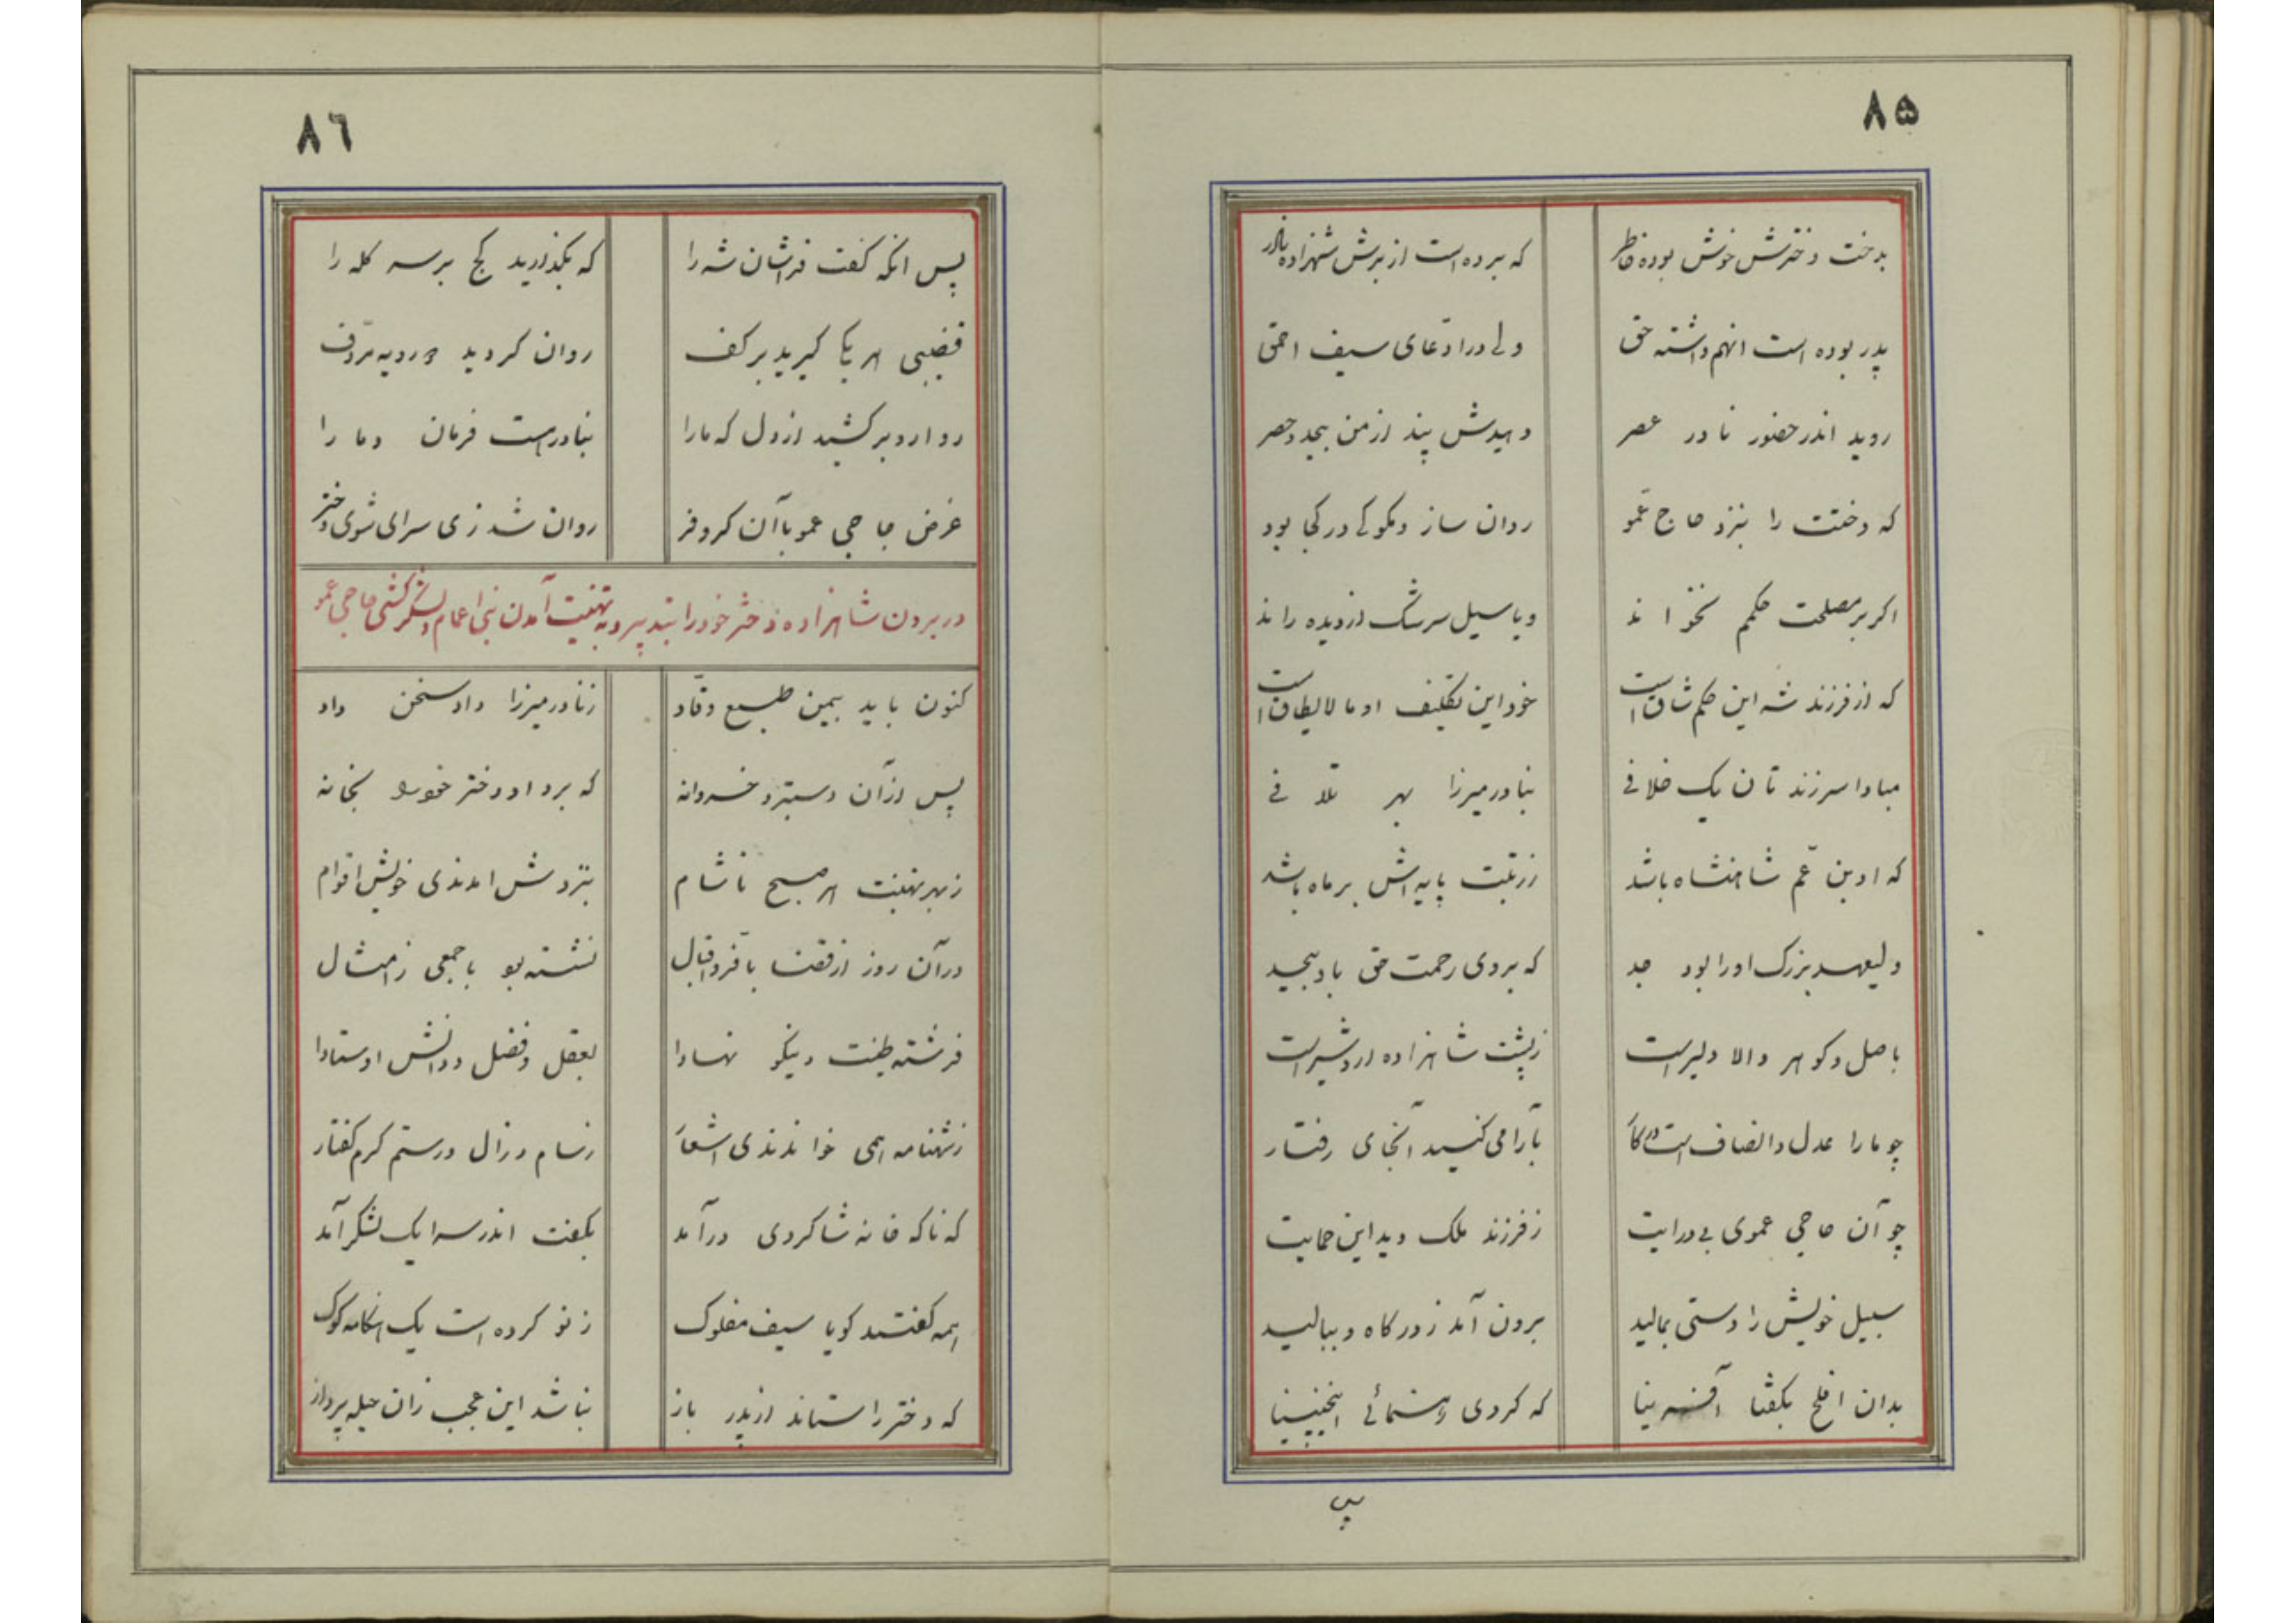 ٨۵
بدخت دخترش خوش بوده خاطر که برده است از برش شهزاده نادر
پدر بوده است انهم داشته حق ولی در ادّعای سیف احمق
روید اندر حضور نادر عصر دهیدش پند از من بیحد وحصر
که دختت را بنزد حاج عمّو روان ساز ومگو کی در کجا بود
اکر بر مصلحت حکمم نخواند ویا سیل سرشک از دیده راند
که از فرزند شه این حکم شاق است خود این تکلیف او ما لایطاق است
مبادا سر زند تان یک خلافی بنادر میرزا بهر تلافی
که او بن عّم شاهنشاه باشد ز رتبت پایه اش بر ماه باشد
ولیعهد بزرک اورا بود جد که بروی رحمت حق باد بیحد
باصل وکوهر والا دلیر است ز پشت شاهزاده اردشیر است
چو مارا عدل وانصاف است در کار بآرامی کنید آنجای رفتار
چو آن حاجی عموی بی درایت ز فرزند ملک دید این حمایت
سبیل خویش را دستی بمالید برون آمد ز درکاه و ببالید
بدان افلح بکفتا آفرینا که کردی رهنمائی اینچنینا
پس
٨٦
پس انکه کفت فراشان شه را که بکذارید کج بر سر کله را
قضیبی هر یکا کیرید بر کف روان کردید در رویه صف
روا رو بر کشید از دل که مارا بنادر است فرمان وما را
غرض حاجی عمو با آن کر وفر روان شد زی سرای شوی دختر
در بردن شاهزاده دختر خودرا بتدبیر وبه تهنیت آمدن بنی اعمام ولشکر کشی حاجی عمو
کنون باید بیمن طبع وقّاد ز نادر میرزا داد سخن داد
پس از آن دستبرد خسروانه که برد او دختر خودرا بخانه
ز بهر تهنیت هر صبح تا شام بنزدش امدندی خویش اقوام
در آن روز از قضا با فرّ واقبال نشسته بود با جمعی ز امثال
فرشته طینت ونیکو نهادا بعقل وفضل ودانش اوستادا
ز شهنامه همی خواندندی اشعار ز سام وزال ورستم کرم کفتار
که ناکه خانه شاکردی در آمد بکفت اندر سرا یک لشکر آمد
همه کفتند کویا سیف مفلوک ز نو کرده است یک هنکامه کوک
که دختر را ستاند از پدر باز نباشد این عجب زان حیله پرداز